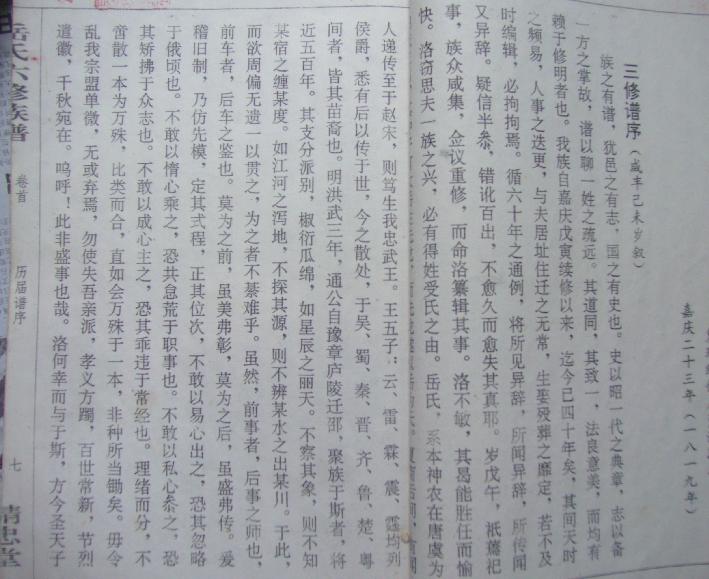 嘉庆二十三年（一八一九年）
三修谱序（咸丰己未岁叙）
族之有谱，犹邑之有志，国之有史也。史以昭一代之典章，志以备
一方之掌故，谱以聊一姓之疏远。其道同，其致一，法良意美，而均有
赖于修明者也。我族自嘉庆戊寅续修以来，迄今已四十年矣，其间天时
之频易，人事之迭更，与夫居址住迁之无常，生娶殁葬之靡定，若不及
时编辑，必拘拘焉。循六十年之通例，将所见异辞，所闻异辞，所传闻
又异辞。疑信半叅，错讹百出，不愈久而愈失其真耶。岁戊午，祇薦祀
事，族众咸集，佥议重修，而命洛纂辑其事。洛不敏，其曷能胜任而愉
快。洛窃思夫一族之兴，必有得姓受氏之由。岳氏，系本神农在唐虞为
人递传至于赵宋，则笃生我忠武王。王五子：云、雷、霖、震、霆均列
侯爵，悉有后以传于世，今之散处，于吴、蜀、秦、晋、齐、鲁、楚、粤
间者，皆其苗裔也。明洪武三年，通公自豫章庐陵迁邵，聚族于斯者，将
近五百年。其支分派别，椒衍瓜绵，如星辰之丽天。不察其象，则不知
某宿之缠某度。如江河之泻地，不探其源，则不辨某水之出某川。于此，
而欲周偏无遗一以贯之，为之者不綦难乎。虽然，前事者，后事之师也，
前车者，后车之鉴也。莫为之前，虽美弗彰，莫为之后，虽盛弗传。爰
稽旧制，乃仿先模，定其式程，正其位次，不敢以易心出之，恐其忽略
于俄顷也。不敢以惰心乘之，恐其怠荒于职事也。不敢以私心叅之，恐
其矫拂于众志也。不敢以成心主之，恐其乖违于常经也。理绪而分，不
啻散一本为万殊，比类而合，直如会万殊于一本，非种所当锄矣。毋令
乱我宗盟单微，无或弃焉，勿使失吾亲派，孝义方躅，百世常新，节烈
遗徽，千秋宛在。呜呼！此非盛事也哉。洛何幸而与于斯，方今圣天子
岳氏六修族谱
卷首
历届谱序
七
精忠堂